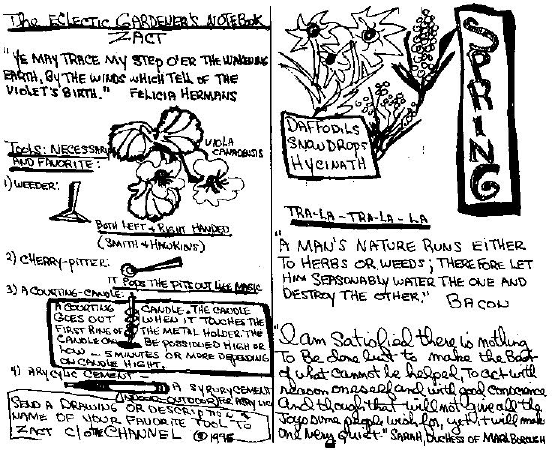 The Eclectic Gardener's Notebook
ZACT
"Ye may trace my step o'er the wakening
earth, by the winds which tell of the
violet's birth." Felicia Hermans
Tools: Necessary
and favorite:
Viola
Canadensis
1) Weeder:
Both left & right handed
(Smith & Hawkins)
2) Cherry-pitter:
It pops the pits out like magic
3) A courting-candle:
A courting candle. The candle
goes out when it touches the
first ring of the metal holder. The
candle can be possidied high or
low - 5 minutes or more depending
on candle hight.
4) Arycylic cement -
A syrury cement
Send a drawing or description &
name of your favorite tool to
Zact c/o the Channel © 1995
Daffodils
Snowdrops
Hycinath
SPRING
TRA-LA-TRA-LA-LA
"A man's nature runs either
to herbs or weeds; therefore let
him seasonably water the one and
destroy the other." Bacon
"I am satisfied there is nothing
to be done but to make the best
of what cannot be helped, to act with
reason oneself and with good conscience
and though that will not give all the
joys some people wish for, yet it will make
one very quiet." Sarah, Duchess of Marlborough